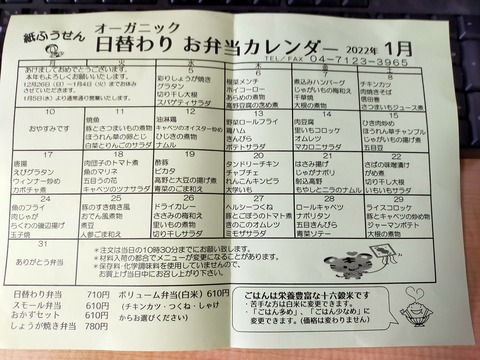 紙ふうせん
オーガニック
日替わり お弁当カレンダー 2022年 1月
TEL/FAX 04-7123-3965
月 火 水 木 金 土
あけましておめでとうございます。
本年もよろしくお願いいたします。
12月26日(日)~1月4日(火)までお休み
させていただきます。
1月5日(水)より通常通り営業いたします。
5
彩りしょうが焼き
グラタン
切り干し大根
スパゲティサラダ
6
根菜メンチ
ホイコーロー
あらめの煮物
高野豆腐の含め煮
7
煮込みハンバーグ
じゃがいもの梅和え
千草焼
大根の煮物
8
チキンカツ
肉焼きそば
信田巻
さつまいもジュース煮
10
おやすみです
11
焼魚
豚とさつまいもの煮物
ほうれん草の卵とじ
白菜とりんごのサラダ
12
油淋鶏
キャベツのオイスター炒め
五目豆
ナムル
13
野菜ロールフライ
鶏ハム
きんぴら
ポテトサラダ
14
肉豆腐
里いもコロッケ
オムレツ
マカロニサラダ
15
ひき肉炒め
ほうれん草チャンプル
じゃがいもの煮物
つくね
17
唐揚
えびグラタン
ウィンナー炒め
カボチャ煮
18
肉団子のトマト煮
魚のマリネ
五目うの花
キャベツのツナサラダ
19
酢豚
ピカタ
高野と大豆の揚げ煮
青菜のごま和え
20
タンドリーチキン
チャプチェ
れんこんキンピラ
大学いも
21
はさみ揚げ
じゃがナポリ
射込み高野
もやしとニラのナムル
22
さばの味噌煮
がめ煮
切り干し大根
いそべ和え
24
魚のフライ
肉じゃが
ちくわの磯辺揚げ
玉子焼
25
豚のすき焼き風
おでん風煮物
煮豆
人参ごまサラダ
26
ドライカレー
ささみの梅和え
里いも煮物
切り干しサラダ
27
ヘルシーつくね
豚とごぼうのトマト煮
きのこのオムレツ
ミモザサラダ
28
ロールキャベツ
ナポリタン
五目きんぴら
青菜ソテー
29
ライスコロッケ
豚とキャベツの炒め物
ジャーマンポテト
大根の煮物
31
ありがとう弁当
*注文は当日の10時30分までにお願い致します。
*材料入荷の都合でメニューが変更になることがあります。
*保存料・化学調味料を使用していませんので、
お買上げ当日中にお召し上がり下さい。
日替わり弁当 710円
スモール弁当 610円
おかずセット 610円
しょうが焼き弁当 780円
ボリューム弁当(白米) 610円
(チキンカツ・つくね・しゃけ
からお選びください)
ごはんは栄養豊富な十六穀米です
・苦手な方は白米に変更できます。
・「ごはん多め」、「ごはん少なめ」に
変更できます。(価格は変わりません)